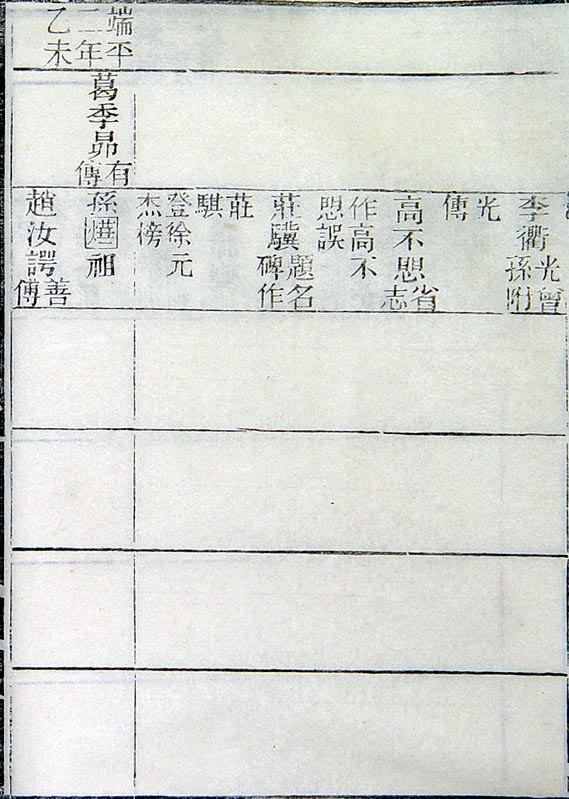 端平
二年
乙未
葛季昴
有
傳
李衢
光曾
孫附
光
傳
高不
省
志
作高不
誤
莊驥
題名
碑作
莊
騏
登徐元
杰榜
孫燁祖
趙汝諤
善
傳